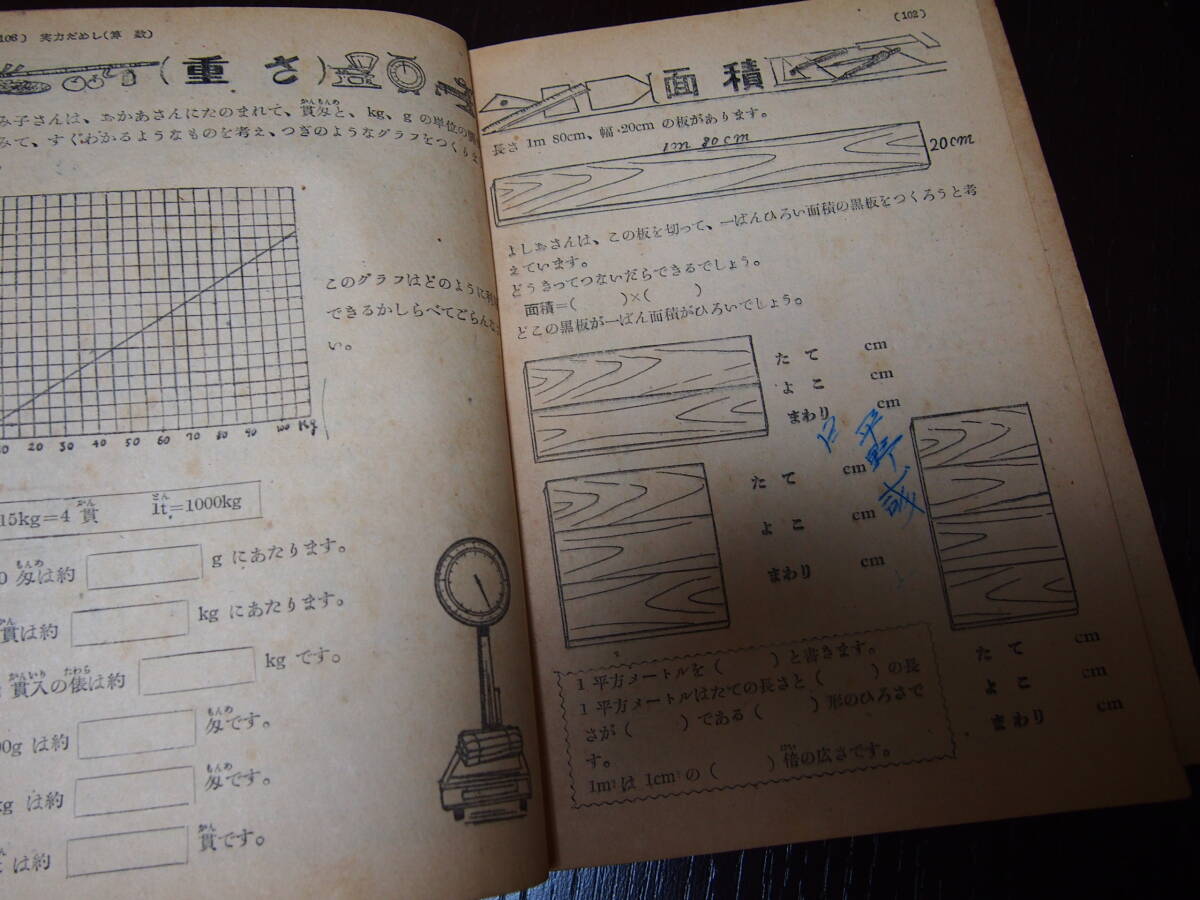 106) 実力だめし(算 数)
(重 さ)
み子さんは、おかあさんにたのまれて、貫匁と、kg、g の単位の
みて、すぐわかるようなものを考え、つぎのようなグラフをつくりま
このグラフはどのように利
できるかしらべてごらんな
い。
10 20 30 40 50 60 70 80 90 100 Kg
15kg=4貫 1t=1000kg
0 匁は約 g にあたります。
貫は約 kg にあたります。
貫入の俵は約 kg です。
00g は約 匁です。
kg は約 匁です。
は約 貫です。
(102)
(面 積)
長さ 1m 80cm、幅 20cm の板があります。
1m 80cm
20cm
よしおさんは、この板を切って、一ばんひろい面積の黒板をつくろうと考
えています。
どうきってつないだらできるでしょう。
面積=( )×( )
どこの黒板が一ばん面積がひろいでしょう。
たて cm
よこ cm
まわり cm
たて cm
よこ cm
まわり cm
たて cm
よこ cm
まわり cm
1 平方メートルを( )と書きます。
1 平方メートルはたての長さと( )の長
さが( )である( )形のひろさで
す。
1m² は 1cm² の( )倍の広さです。